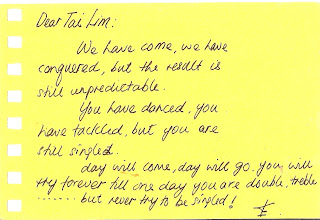 Dear Tai Lim:
We have come, we have
conquered, but the result is
still unpredictable.
You have danced, you
have tackled, but you are
still singled.
day will come, day will go. you will
try forever till one day you are double, treble
........ but never try to be singled!